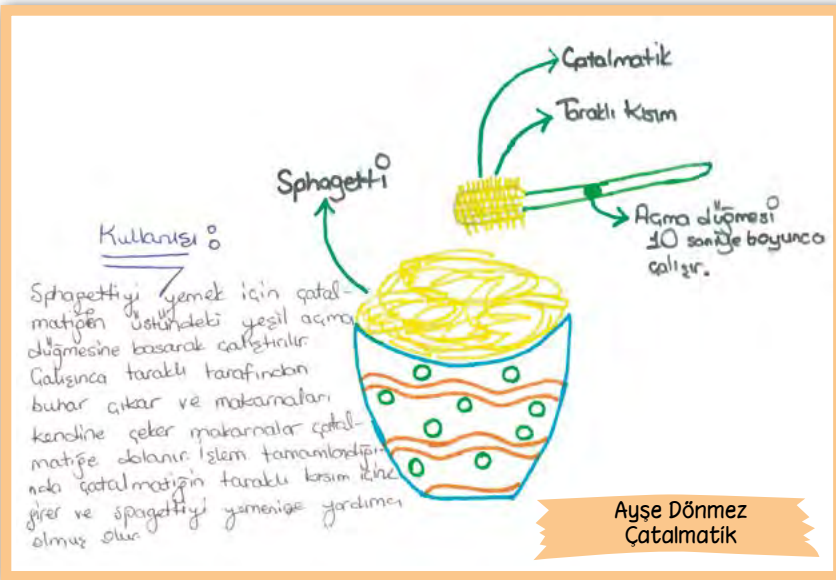 Çatalmatik
Taraklı Kısım
Sphagetti
Açma düğmesi
10 saniye boyunca
çalışır.
Kullanışı:
Sphagettiyi yemek için çatal-
matiğin üstündeki yeşil açma
düğmesine basarak çalıştırılır.
Çalışınca taraklı tarafından
buhar çıkar ve makarnaları
kendine çeker makarnalar çatal-
matiğe dolanır. İşlem tamamlandığı-
nda çatalmatiğin taraklı kısım içine
girer ve spagettiyi yemenize yardımcı
olmuş olur.
Ayşe Dönmez
Çatalmatik